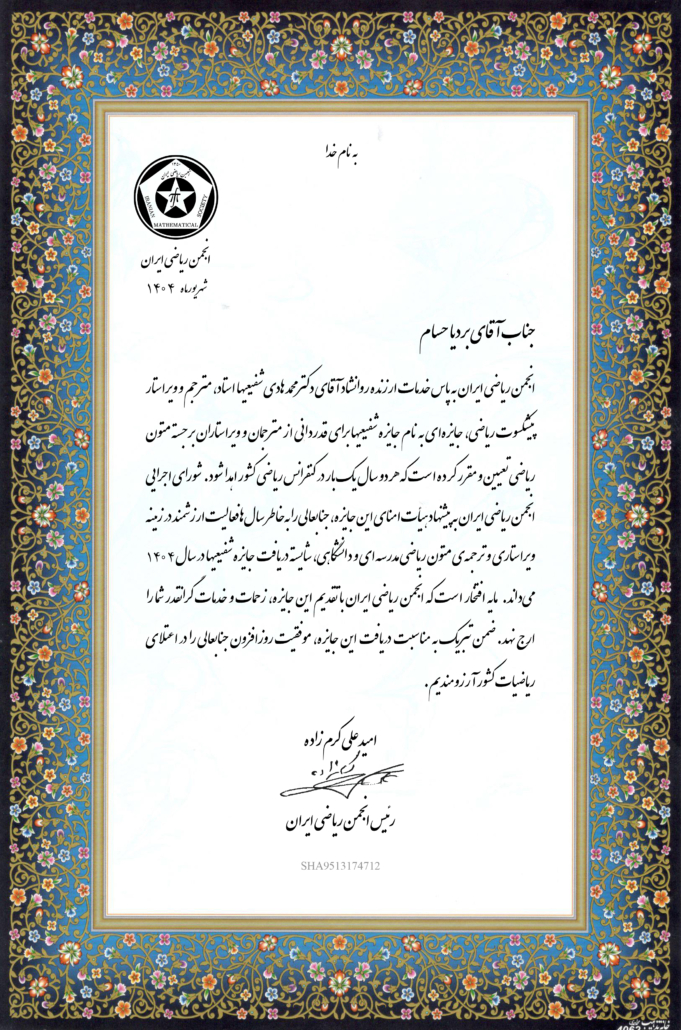 به نام خدا
۱۳۵۰
انجمن ریاضی ایران
IRANIAN MATHEMATICAL SOCIETY
انجمن ریاضی ایران
شهریورماه ۱۴۰۴
جناب آقای بردیا حسام
انجمن ریاضی ایران به پاس خدمات ارزنده روانشاد آقای دکتر محمدهادی شفیعیها استاد، مترجم و ویراستار
پیشکسوت ریاضی، جایزه‌ای به نام جایزه شفیعیها برای قدردانی از مترجمان و ویراستاران برجسته متون
ریاضی تعیین و مقرر کرده است که هر دو سال یک بار در کنفرانس ریاضی کشور اهدا شود. شورای اجرایی
انجمن ریاضی ایران به پیشنهاد هیأت امنای این جایزه، جنابعالی را به خاطر سال ها فعالیت ارزشمند در زمینه
ویراستاری و ترجمه‌ی متون ریاضی مدرسه ای و دانشگاهی، شایسته دریافت جایزه شفیعیها در سال ۱۴۰۴
می‌داند. مایه افتخار است که انجمن ریاضی ایران با تقدیم این جایزه، زحمات و خدمات گرانقدر شما را
ارج نهد. ضمن تبریک به مناسبت دریافت این جایزه، موفقیت روزافزون جنابعالی را در اعتلای
ریاضیات کشور آرزومندیم.
امید علی کرم زاده
رئیس انجمن ریاضی ایران
SHA9513174712